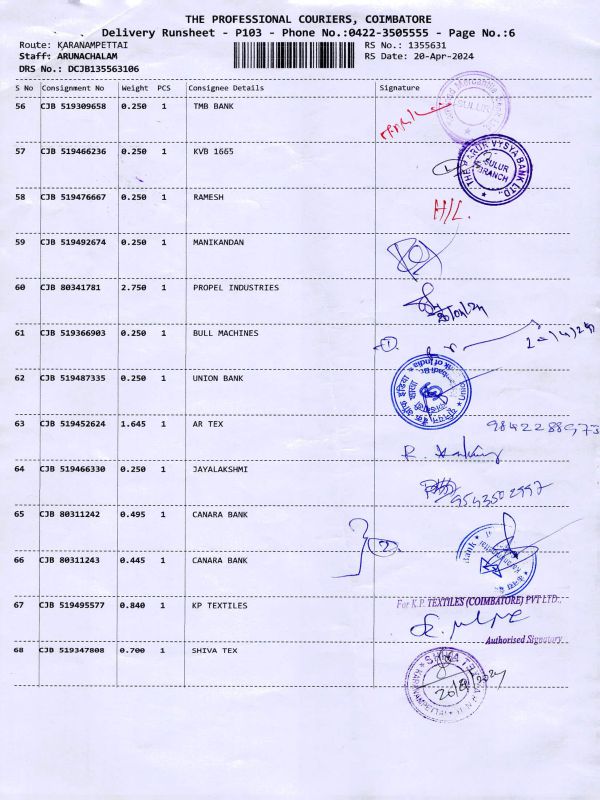 THE PROFESSIONAL COURIERS, COIMBATORE
Delivery Runsheet - P103 - Phone No.:0422-3505555 - Page No.:6
Route: KARANAMPETTAI RS No.: 1355631
Staff: ARUNACHALAM RS Date: 20-Apr-2024
DRS No.: DCJB135563106
S No Consignment No Weight PCS Consignee Details Signature
56 CJB 519309658 0.250 1 TMB BANK
SULUR
57 CJB 519466236 0.250 1 KVB 1665
THE KARUR VYSYA BANK LTD.
SULUR BRANCH
58 CJB 519476667 0.250 1 RAMESH
H/L.
59 CJB 519492674 0.250 1 MANIKANDAN
60 CJB 80341781 2.750 1 PROPEL INDUSTRIES
20/04/24
61 CJB 519366903 0.250 1 BULL MACHINES
①
62 CJB 519487335 0.250 1 UNION BANK
63 CJB 519452624 1.645 1 AR TEX
9842288973
64 CJB 519466330 0.250 1 JAYALAKSHMI
9543502997
65 CJB 80311242 0.495 1 CANARA BANK
②
66 CJB 80311243 0.445 1 CANARA BANK
67 CJB 519495577 0.840 1 KP TEXTILES
For K.P. TEXTILES (COIMBATORE) PVT LTD.,
Authorised Signatory
68 CJB 519347808 0.700 1 SHIVA TEX
SHIVA TEX
KARANAMPETTAI
20/4/2024